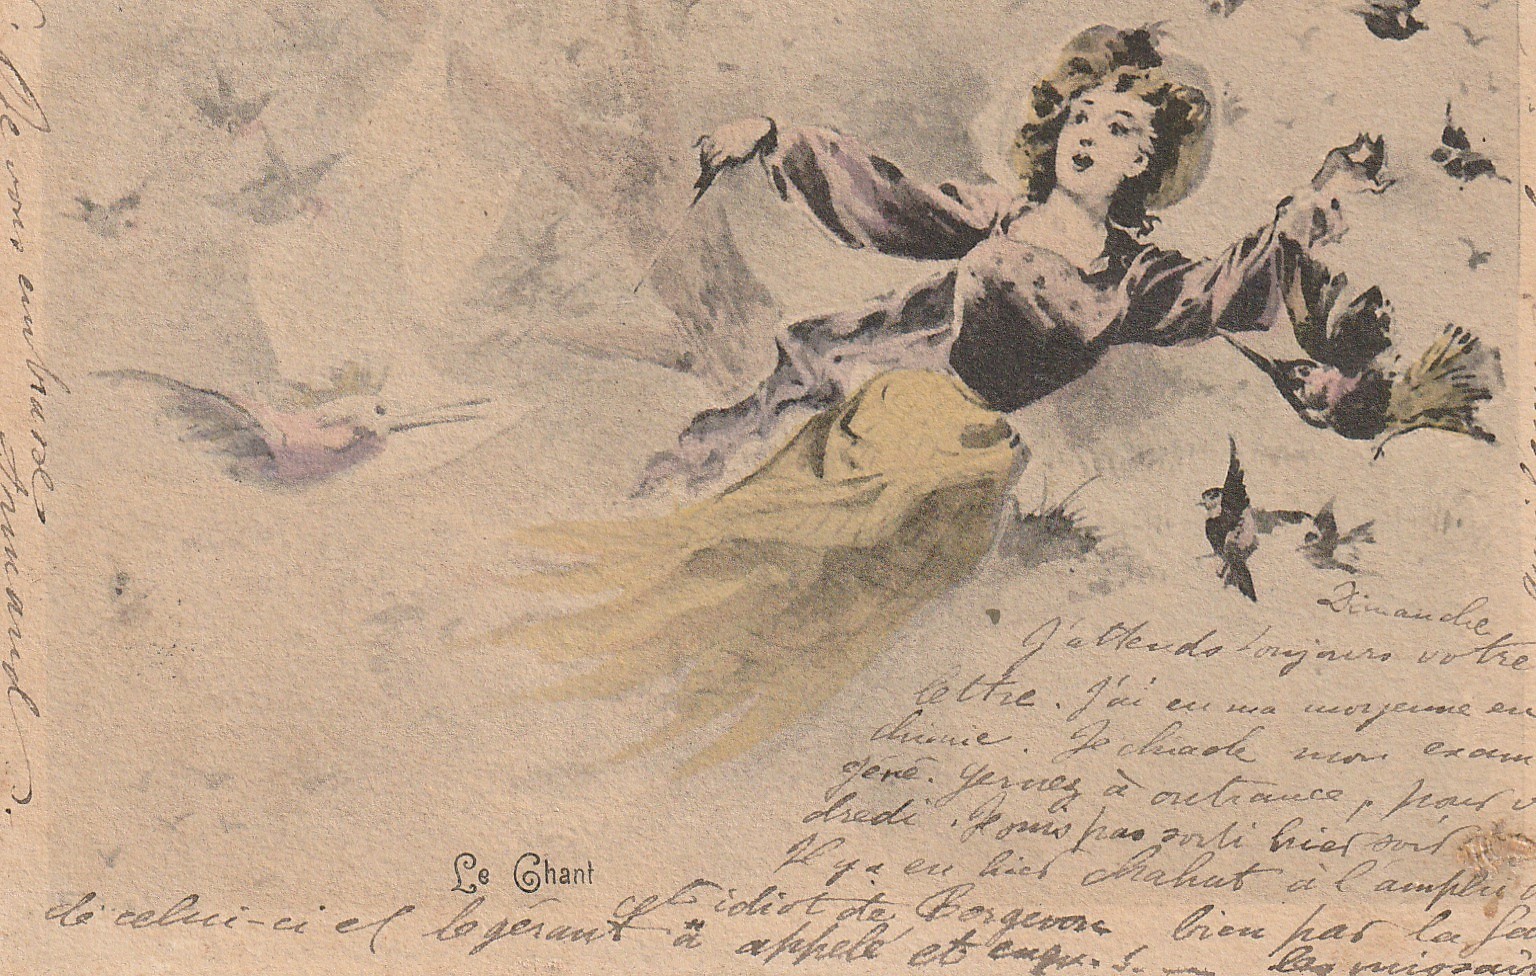 Dimanche
J'attends toujours votre
lettre. J'ai eu ma moyenne en
chimie. Je chiade mon exam
géné. Gernez à outrance, pour v
dredi. Je suis pas sorti hier soir
Il y a eu hier chahut à l'amphi d
cet idiot de Borgevon bien par la
Le Chant
de celui-ci et le gérant a appelé et
Je vous embrasse
Armand.